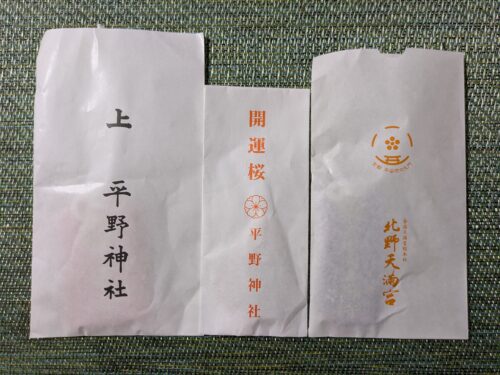 上
平野神社
開運桜
平野神社
北野天満宮